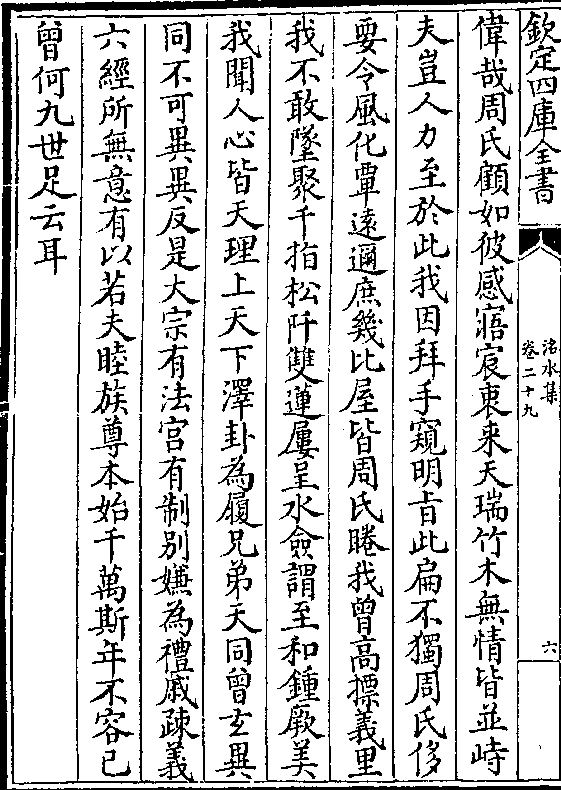 欽定四庫全書
洺水集
卷二十九
六
偉哉周氏顧如彼感寤宸衷来天瑞竹木無情皆並峙
夫豈人力至於此我因拜手窺明旨此扁不獨周氏侈
要令風化覃遠邇庶幾比屋皆周氏睠我曾高摽義里
我不敢墜聚千指松阡雙蓮屢呈水僉謂至和鍾厥美
我聞人心皆天理上天下澤卦為履兄弟天同曾玄異
同不可異異反是大宗有法宫有制别嫌為禮戚疎義
六經所無意有以若夫睦族尊本始千萬斯年不容已
曾何九世足云耳